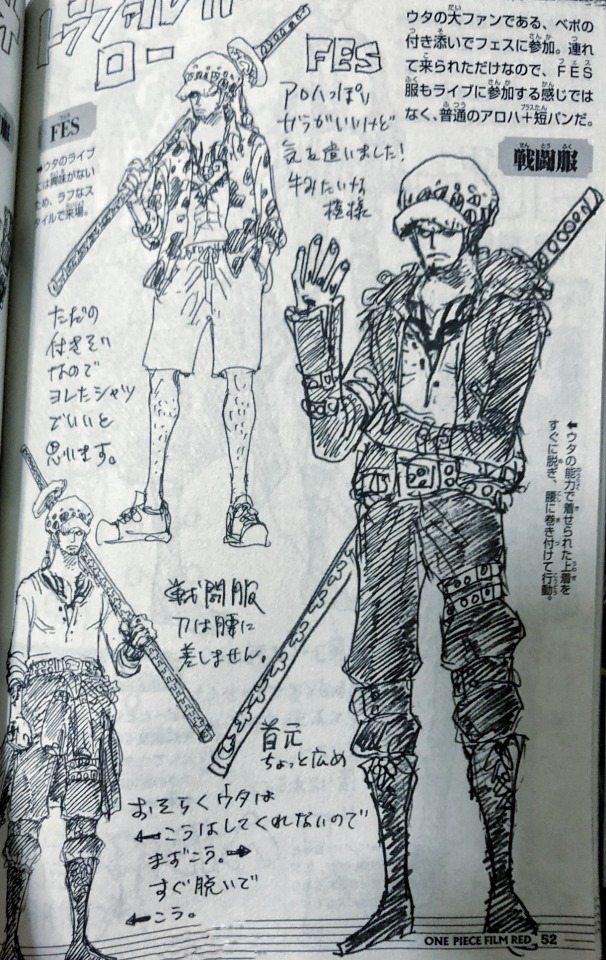 トラファルガー
ロー
FES
アロハっぽい
ガラがいいけど
気を遣いました!
牛みたいな
模様
ウタの大ファンである、ベポの
付き添いでフェスに参加。連れ
て来られただけなので、FES
服もライブに参加する感じでは
なく、普通のアロハ+短パンだ。
FES
ウタのライブ
には興味がない
ため、ラフなス
タイルで来場。
戦闘服
ただの
付きそい
なので
ヨレたシャツ
でいいと
思います。
←ウタの能力で着せられた上着を
すぐに脱ぎ、腰に巻き付けて行動。
戦闘服
刀は腰に
差しません。
首元
ちょっと広め
おそらくウタは
←こうはしてくれないので
まずこう。→
すぐ脱いで
←こう。
ONE PIECE FILM RED 52